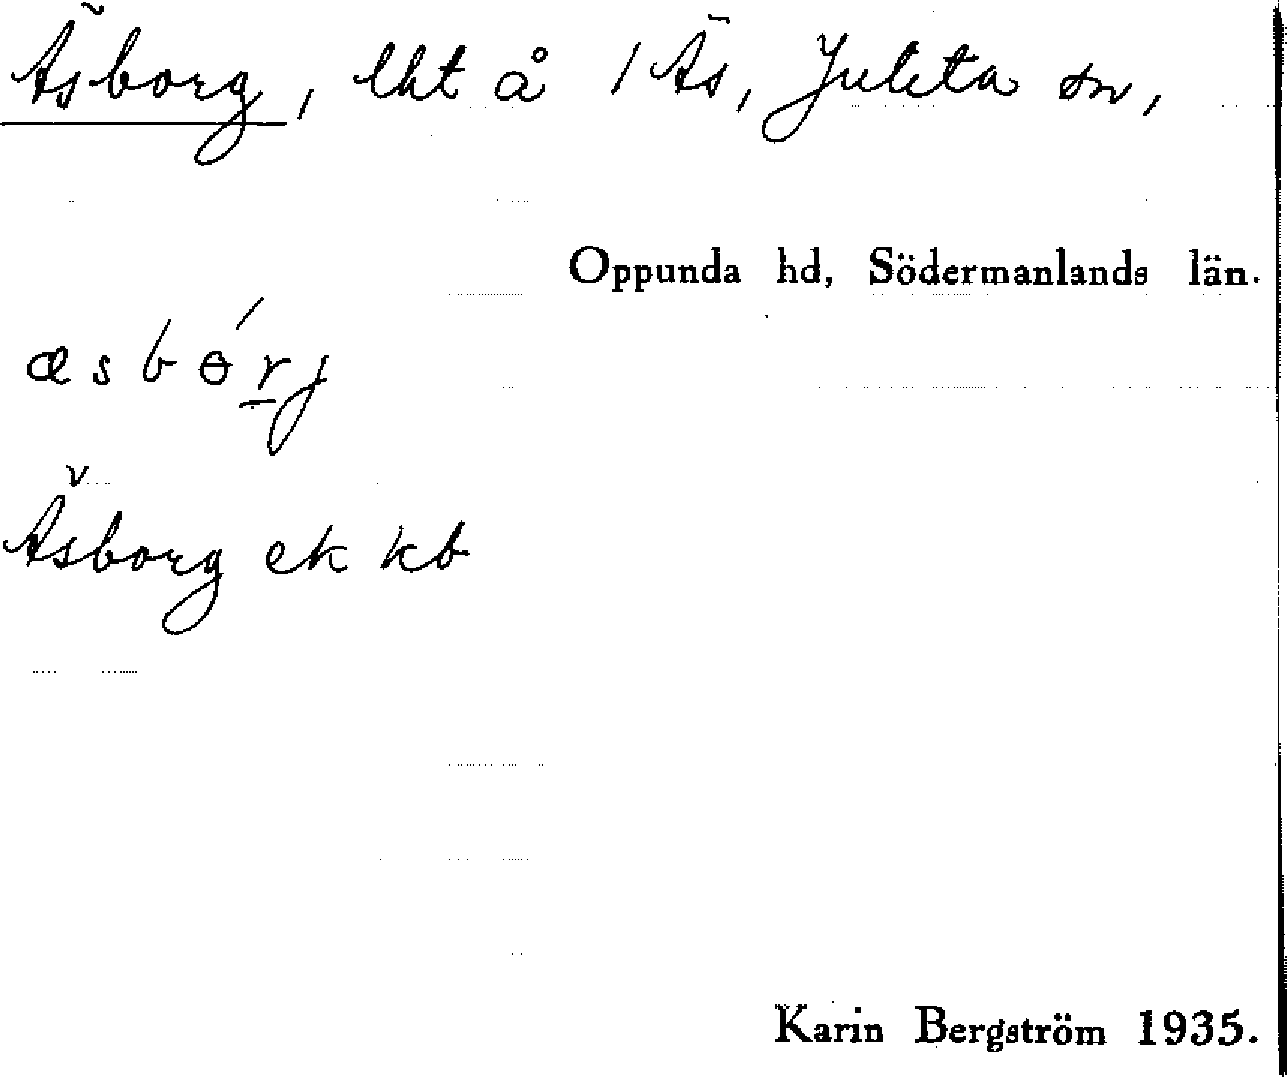 Äsborg, lht å 1 Äs, Juleta sn,
Oppunda hd, Södermanlands län.
æsbɵ́rj
Äsborg ek kb
Karin Bergström 1935.